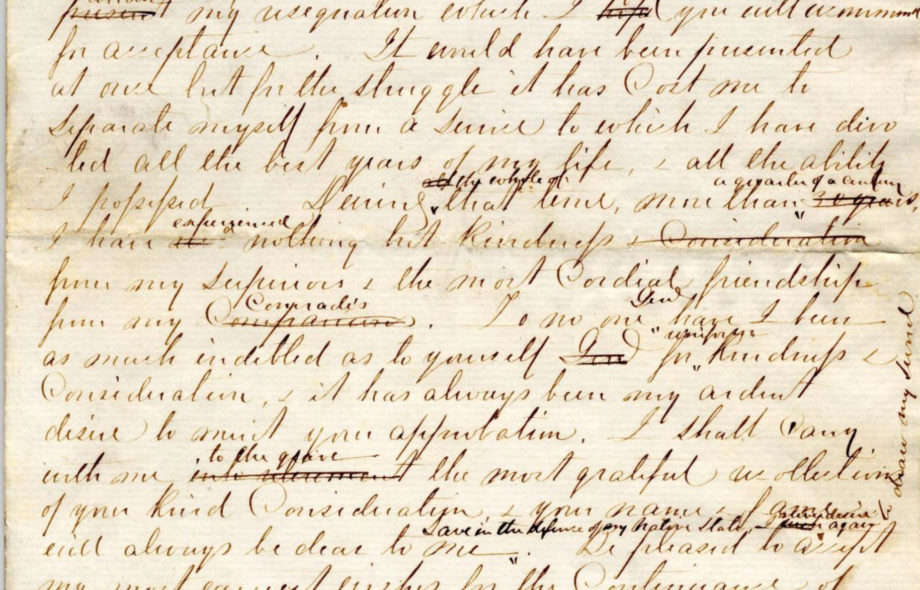 my resignation which I you will recommend
for acceptance. It would have been presented
at once but for the struggle it has Cost me to
separate myself from a service to which I have devo
ted all the best years of my life, & all the ability
I possessed. the whole of a quarter of a century
During that time, more than 30 years,
experienced
I have nothing but kindness & Consideration
from my superiors & the most Cordial friendship
Comrades Genl
from my Companions. To no one have I been
uniform
as much indebted as to yourself Genl for kindness &
Consideration, & it has always been my ardent
desire to merit your approbation. I shall carry
to the grave
with me into retirement the most grateful recollection
of your kind Consideration, & your name & fame
Save in the defence of my native State, I never desire again
will always be dear to me. Be pleased to accept
my most earnest wishes for the Continuance of
draw my sword